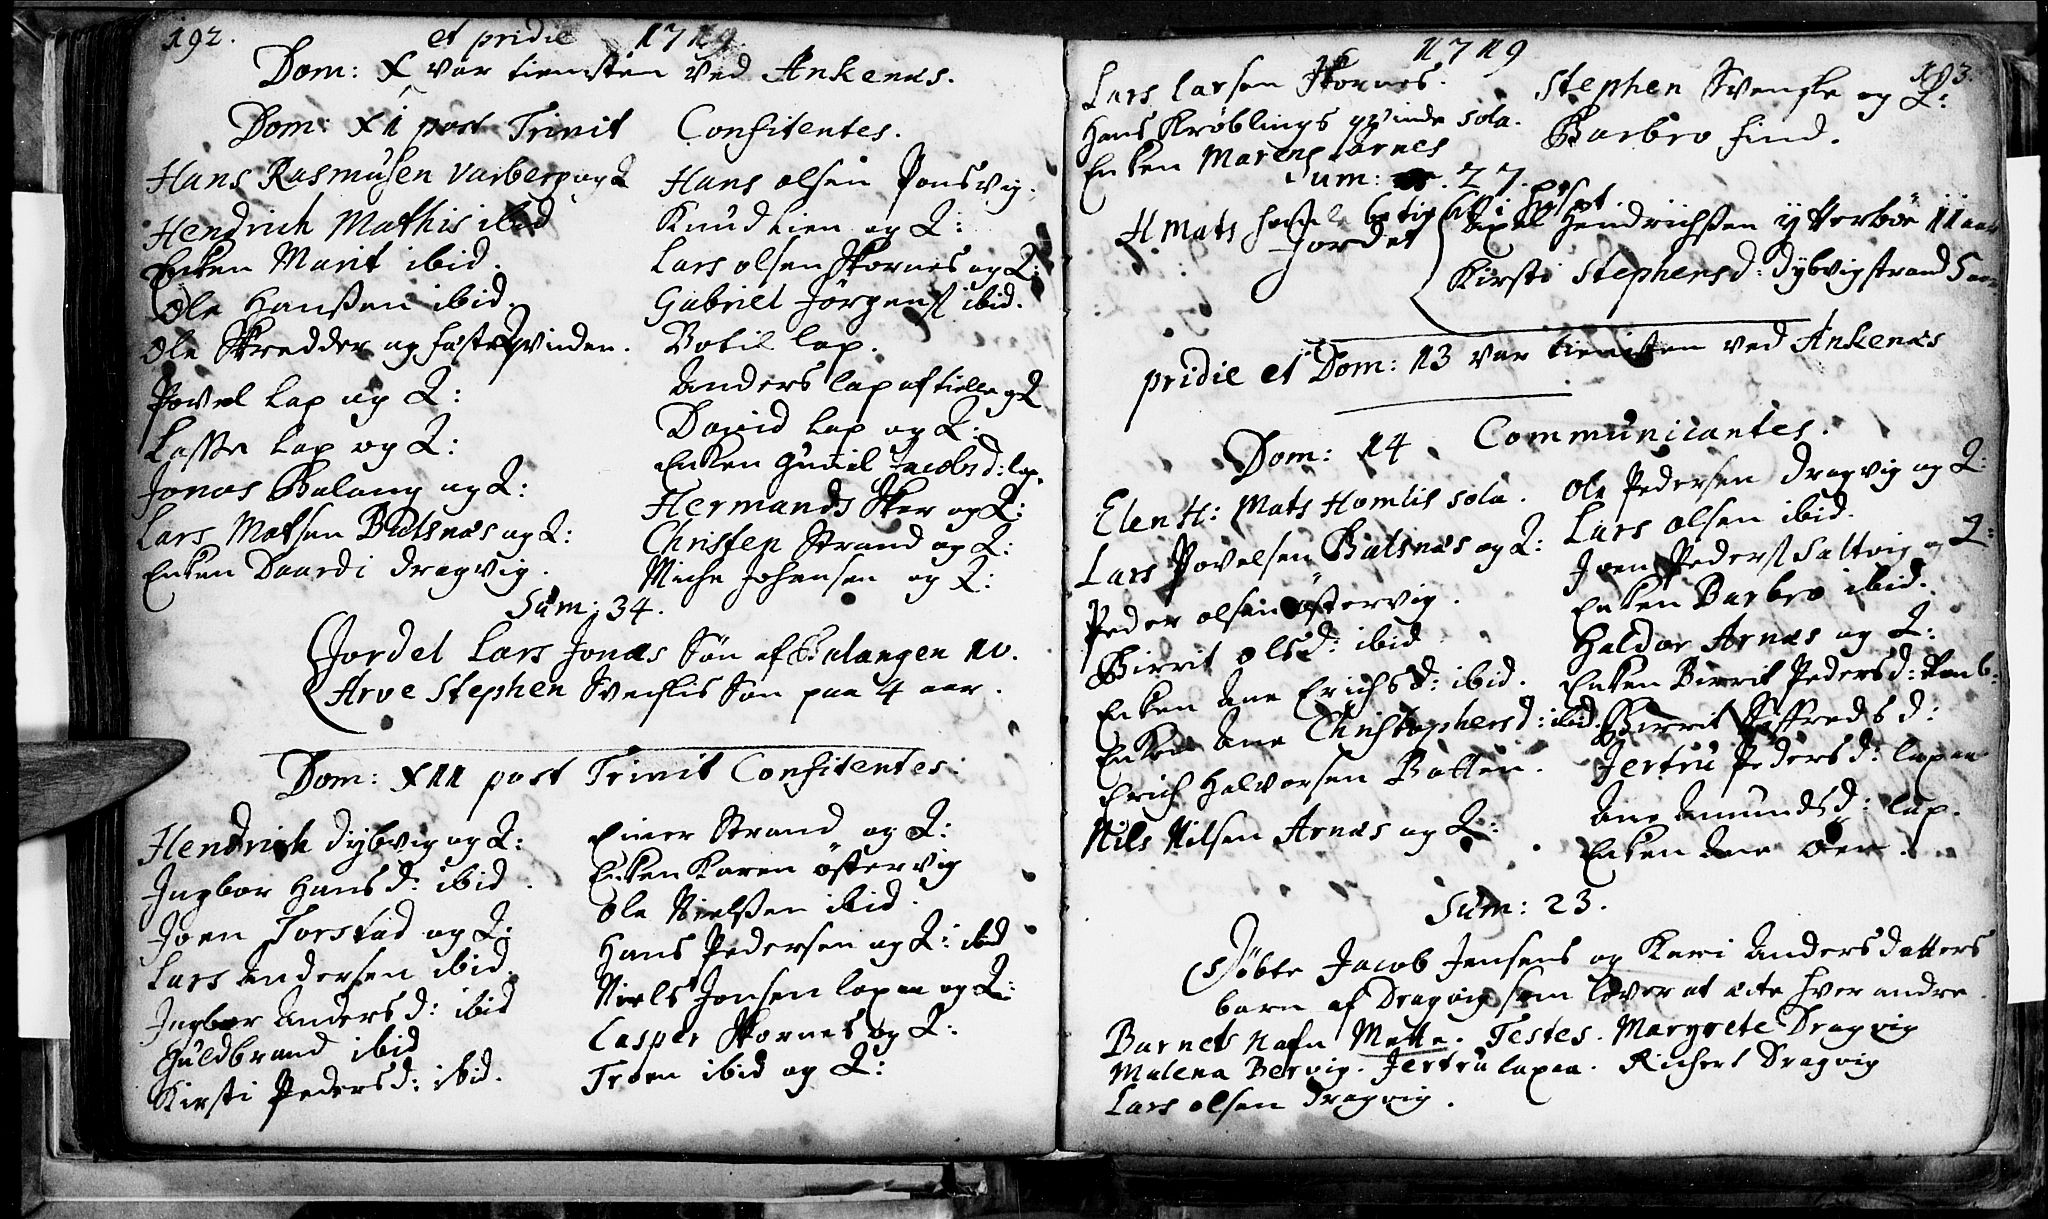 192. et pridie 1719.
Dom: X var tienisten ved Ankenæs.
Dom: XI post Trinit Confitentes.
Hans Rasmusen Varberg og Q
Hendrich Mathis ibid
Enken Marit ibid.
Ole Hanssen ibid.
Ole Skredder og fæsteqvinden.
Povel Lap og Q:
Lasse Lap og Q:
Jonas Balang og Q:
Lars Matsen Bielsnæs og Q:
Enken Daardi dragvig.
Hans olsen Ponsvig.
Knud Lien og Q:
Lars olsen Skornes og Q:
Gabriel Jørgens ibid.
Botil lap.
Anders lap af tielle og Q
David lap og Q:
Enken Gunil Jacobsd: lap.
Hermands Sker og Q:
Christen Strand og Q:
Miche Johansen og Q:
Sum: 34.
Jordet Lars Jonæs Søn af Balangen 10.
Arve Stephen Svenskis Søn paa 4 aar.
Dom: XII post Trinit Confitentes:
Hendrich dybvig og Q:
Ingbor Hansd: ibid.
Joen Torstad og Q:
Lars andersen ibid.
Ingbor Andersd: ibid
Guldbrand ibid
Kirsti Pedersd: ibid.
Einer Strand og Q:
Enken Karen østervig
Ole Nielssen ibid.
Hans Pedersen og Q: ibid
Niels Jonsen lapaa og Q:
Casper Skornes og Q:
Troen ibid og Q:
1719 193.
Lars larsen Skornes.
Hans Krøblings qvinde sola.
Enken Maren Skornes
Stephen Svenske og Q:
Barbro find.
Sum: 27.
H Mats
Jordet Axel Hendrichssen ytterbøe 11 aar
Kirsti Stephensd: dybvigstrand 5 aar
pridie et Dom: 13 var tienisten ved Ankenæs
Dom: 14 Communicantes.
Elen H: Mats Homlis sola.
Lars Povelsen Bielsnæs og Q:
Peder olsen østervig.
Birrit olsd: ibid
Enken Ane Erichsd: ibid.
Enken Ane Christophersd: ibid.
Erich Halvorsen Botten.
Nils Nilsen Arnæs og Q:
Ole Pedersen dragvig og Q:
Lars olsen ibid.
Joen Peders Saltvig og Q:
Enken Barbro ibid.
Haldor Arnæs og Q:
Enken Birrit Pedersd:
Birrit Siffredsd:
Jertru Pedersd: lapaa
Ane Amundsd: lap.
Enken Ane oer.
Sum: 23.
Døbte Jacob Jensens og Kari Andersdatters
barn af Dragvig som lover at ecte hver andre.
Barnets Nafn Mette. Testes. Margrete Dragvig
Malena Bervig. Jertru lapaa. Richert Dragvig
Lars olsen dragvig.